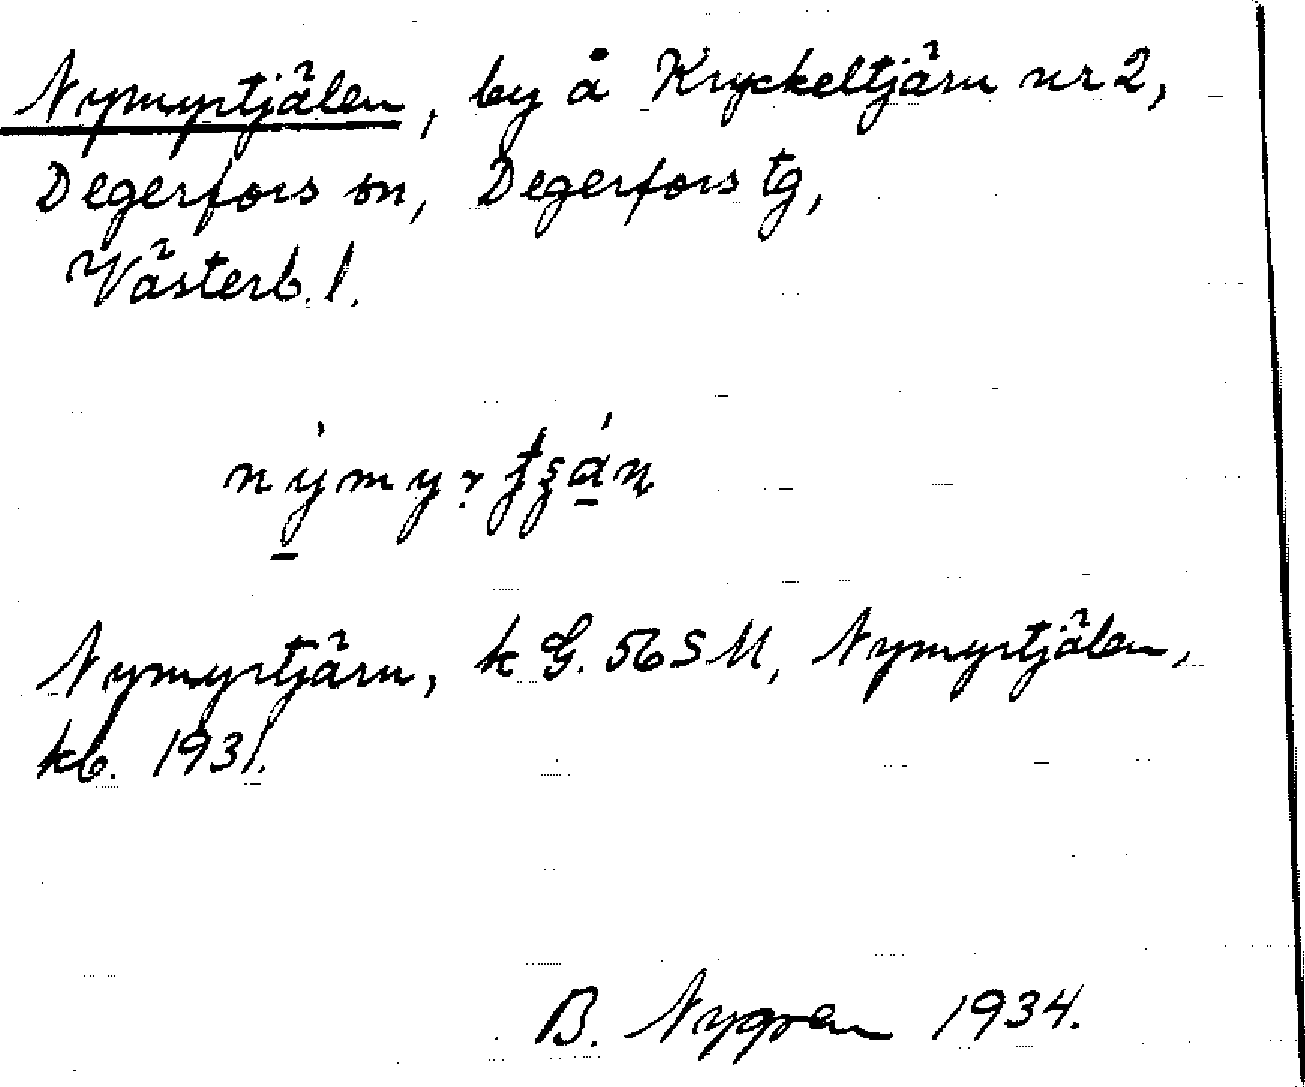 Nymyrtjälen, by å Kryckeltjärn nr 2,
Degerfors sn, Degerfors tg,
Västerb. l.
Nymyrtjärn, k G. 56 SM, Nymyrtjälen,
kb. 1931.
B. Nygren 1934.